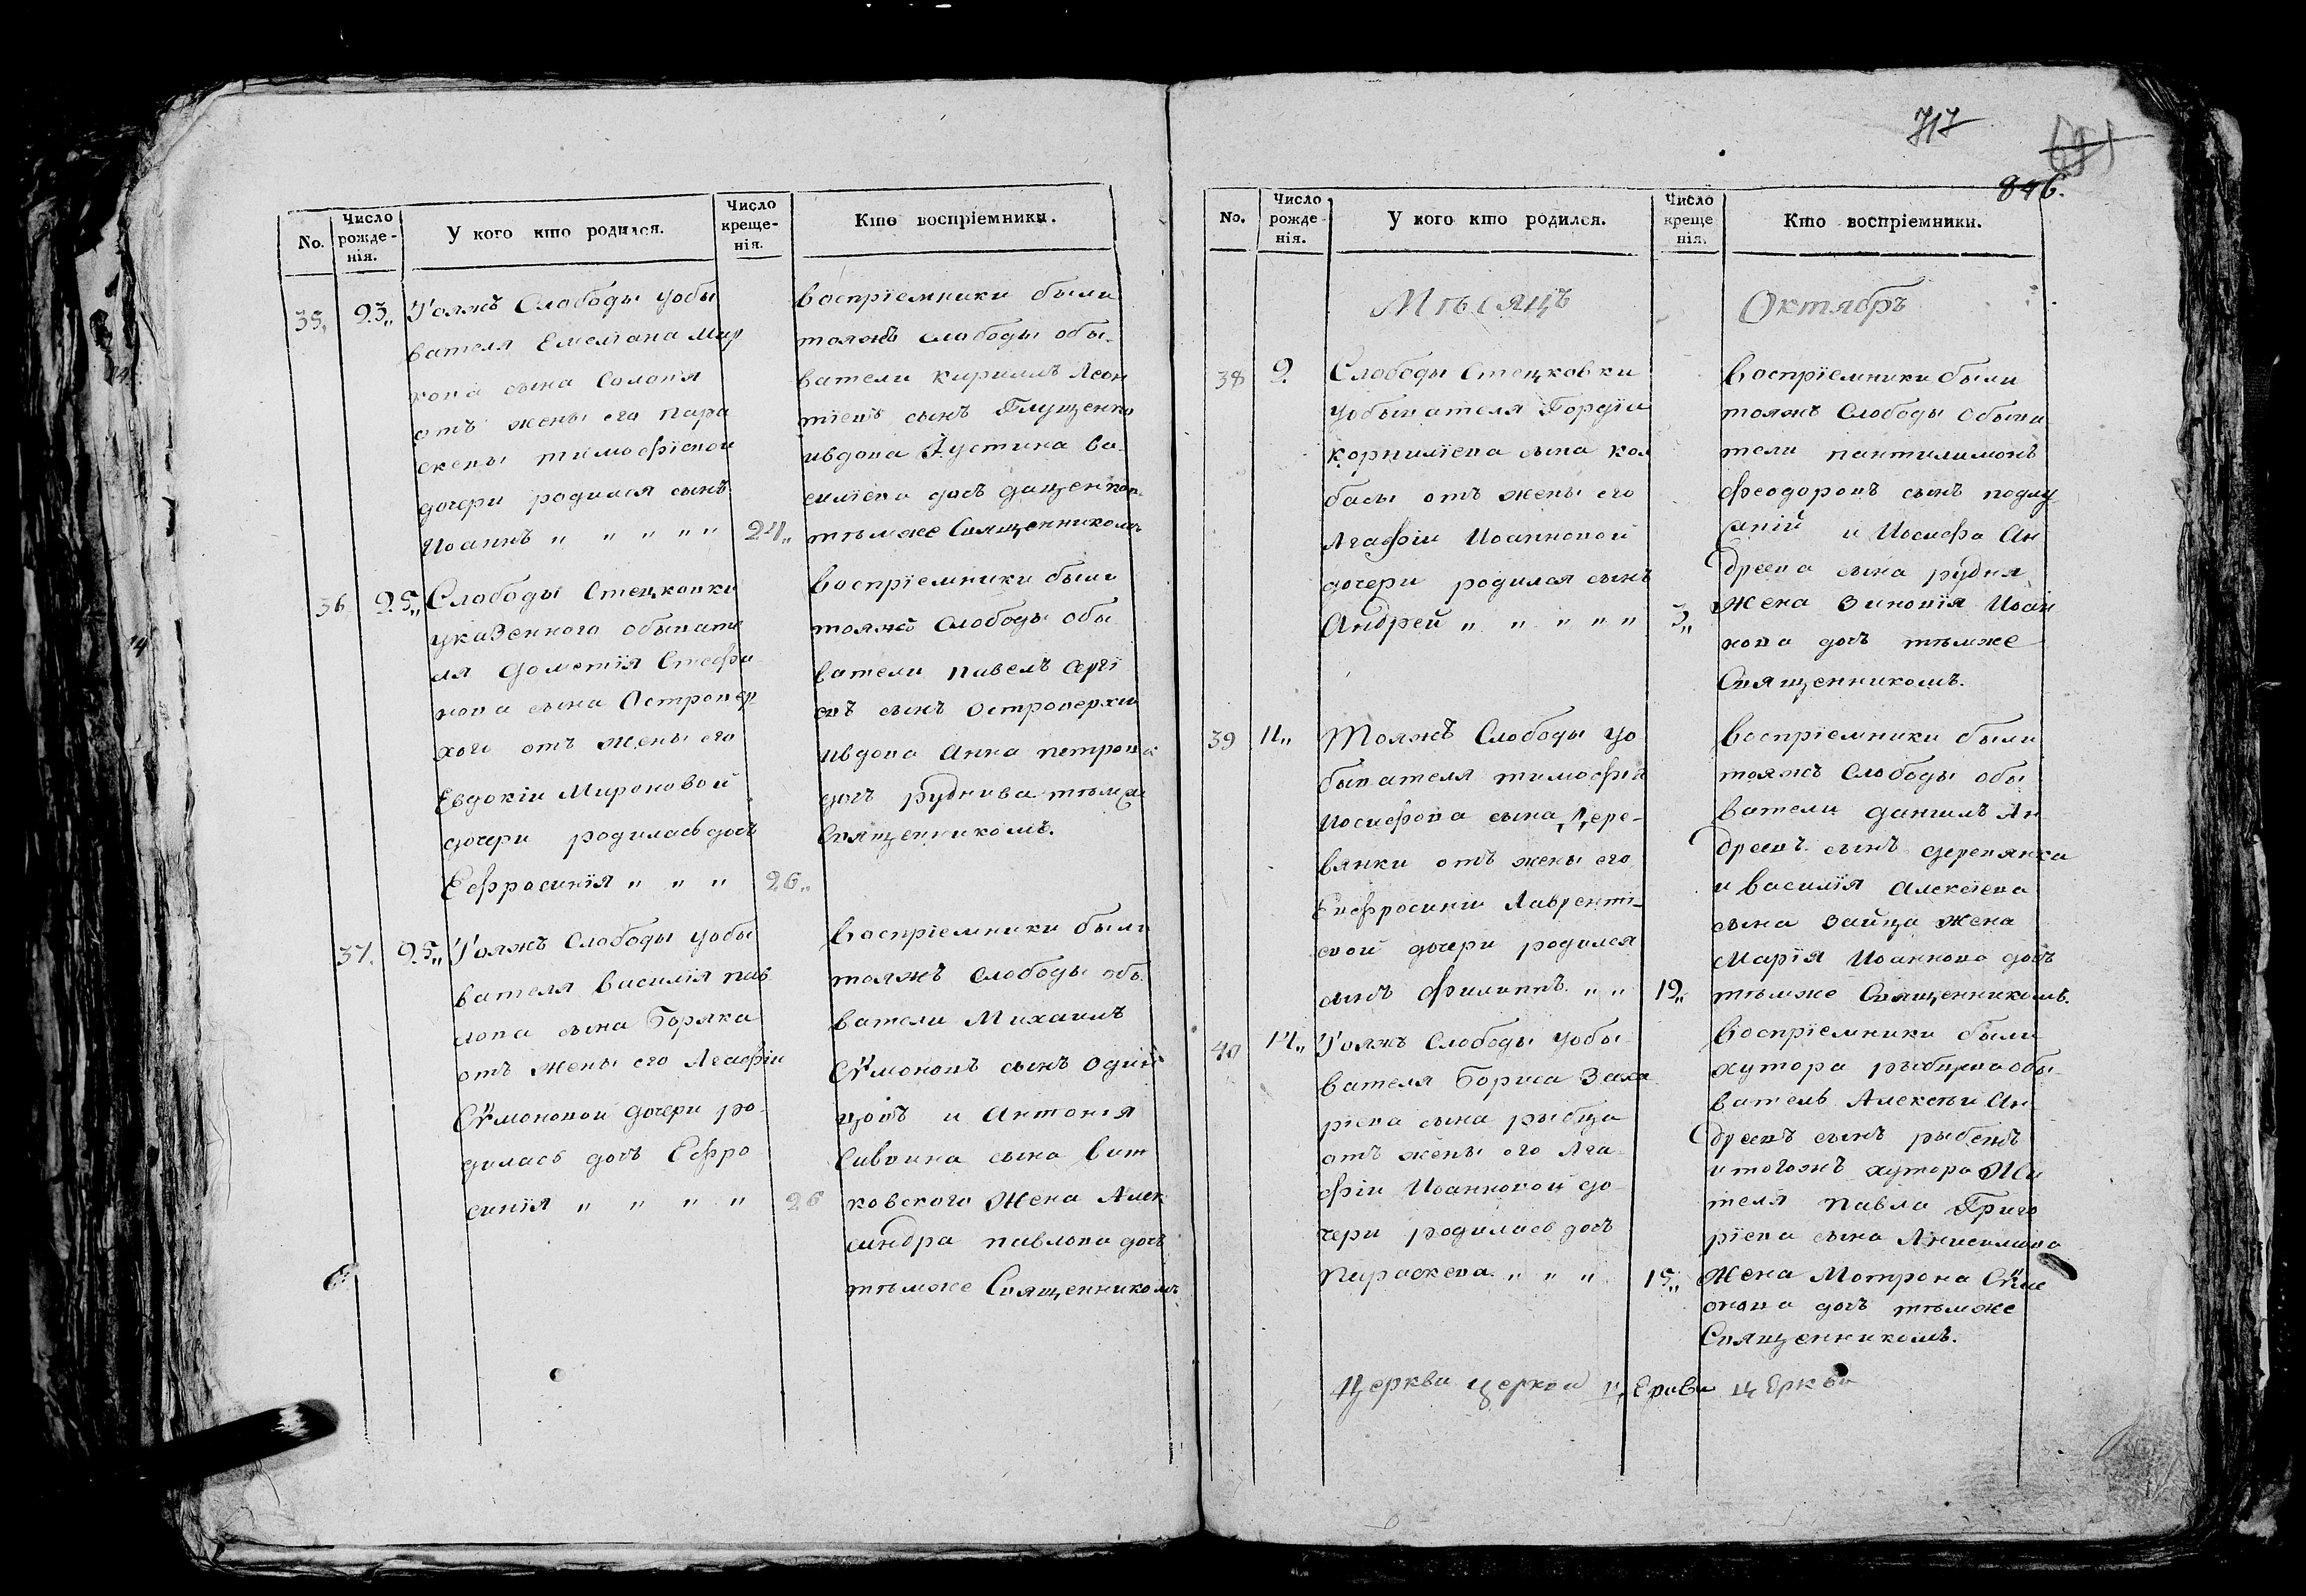 No.
Число рожде-
нія.
У кого кто родился.
Число креще-
нія.
Кто воспріемники.
35,
23,,
Тояжъ Слободы уобы
вателя Емеліана Мир
кова сына Солопія
отъ жены его пара
скевы тимофіевои
дочери родился сынъ
Иоаннъ ,, ,, ,, ,, ,,
24,,
воспріемники были
тояжъ слободы обы-
ватели кириллъ Леон
тіевъ сынъ Глущенко
ивдова Иустина ва-
силіева дочъ
тѣмже Священникомъ
36
25,,
Слободы Стецковки
указенного обывате
ля Дометія Стефа
нова сына Остропер
хого отъ жены его
Евдокіи Мироновой
дочери родиласъ дочъ
Ефросинія ,, ,, ,,
26,,
воспріемники были
тояжъ слободы обы
ватели павелъ Сергі
евъ сынъ остроперхии
ивдова Анна петрова
дочъ руднива тѣмже
Священникомъ.
37.
25,,
Тояжъ Слободы уобы
вателя василія пав
лова сына Горяка
отъ жены его Агафіи
Сѵмоновои дочери ро-
диласъ дочъ Ефро
синія ,, ,, ,, ,,
26
воспріемники были
тояжъ слободы обы
ватели Михаилъ
Сѵмоновъ сынъ
и Антонія
Саввина сына вит
ковского Жена Алек
сандра павлова дочъ
тѣмже Священникомъ
717
846.
No.
Число
рожде-
нія.
У кого кто родился.
Число
креще
нія.
Кто воспріемники.
Мѣсяцъ
Октябръ
38
2
Слободы Стецковки
уобывателя Гордіа
корниліева сына кол
басы отъ жены его
Агафіи Иоанновой
дочери родился сынъ
Андрей ,, ,, ,, ,, ,,
3,,
воспріемники были
тояжъ Слободы обыва
тели пантилимонъ
феодоровъ сынъ
и Иосифа Ан
дреева сына рудня
жена Зиновія Иоан
нова дочъ тѣмже
Священникомъ.
39
11,,
Тояжъ Слободы уо
бывателя тимофія
Иосифова сына Дере-
вянки отъ жены его
Евфросиніи Лавренті-
евой дочери родился
сынъ филиппъ ,, ,,
12,,
воспріемники были
тояжъ Слободы обы
ватели даниилъ Ан
дреевъ сынъ деревянка
и василія Алексіева
сына Зайца жена
Марія Иоаннова дочъ
тѣмже Священникомъ.
40
14,,
Тояжъ Слободы уобы-
вателя Бориса Заха
ріева сына рыбца
отъ жены его Ага-
фіи Иоанновой до
чери родиласъ дочъ
Параскева ,, ,, ,,
15,,
воспріемники были
хутора рыбцева обы-
ватель Алексѣи Ан
дреевъ сынъ рыбецъ
и тогожъ хутора жи
теля павла Григо
ріева сына
Жена Мотрона Сѵм
онова дочъ тѣмже
Священникомъ.
Церкви церкви Церкви церкви